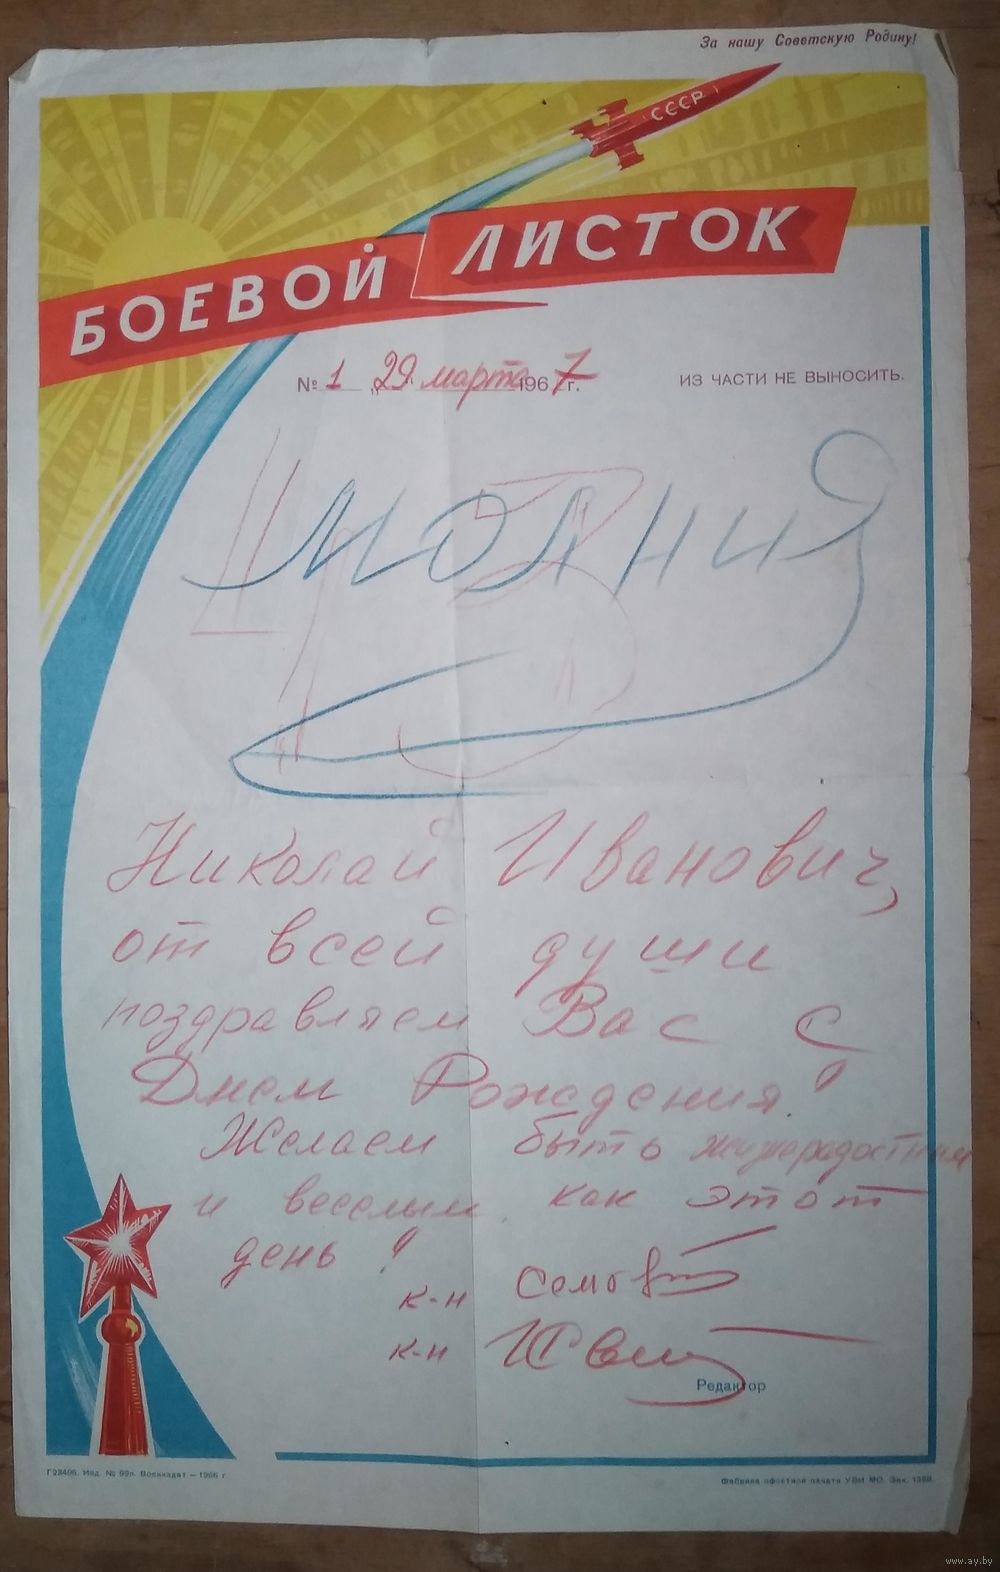 За нашу Советскую Родину!
СССР
БОЕВОЙ ЛИСТОК
№ 1 „29" марта 1967 г.
ИЗ ЧАСТИ НЕ ВЫНОСИТЬ.
МОЛНИЯ
Николай Иванович,
от всей души
поздравляем Вас с
Днем Рождения!
Желаем быть
и веселым, как этот
день!
к-н
к-н
Редактор
Г23495. Изд. № 99л. Воениздат — 1966 г
Фабрика офсетной печати УВИ МО. Зак. 1388
www.ay.by